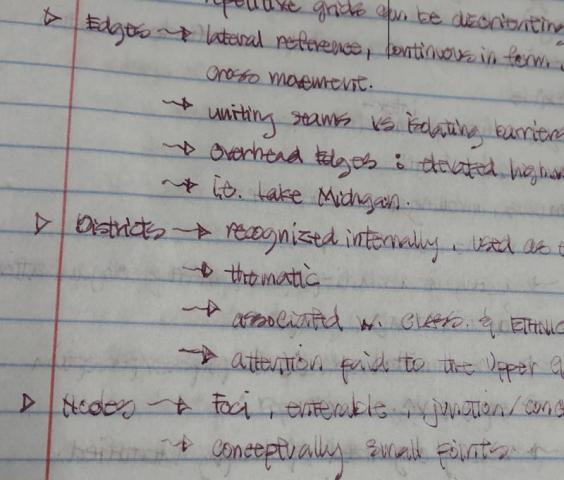 grids can be disorienting
▷ Edges → lateral reference, continuous in form,
cross movement.
→ uniting seams vs isolating barriers
→ overhead Edges : elevated highw
→ i.e. Lake Michigan.
▷ Districts → recognized internally, used as
→ thematic
→ associated w. class. & Ethnic
→ attention paid to the Upper
▷ Nodes → Foci, enterable, junction/conc
→ conceptually small points.